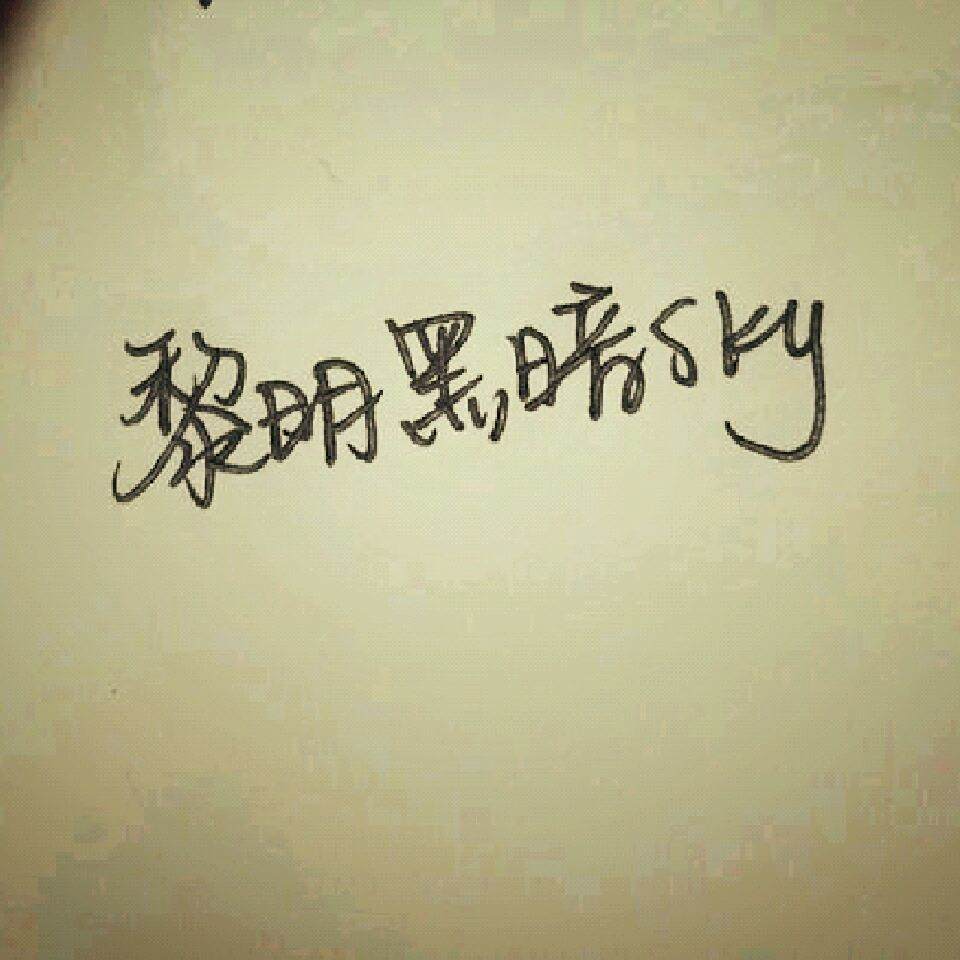 黎明黑暗sky